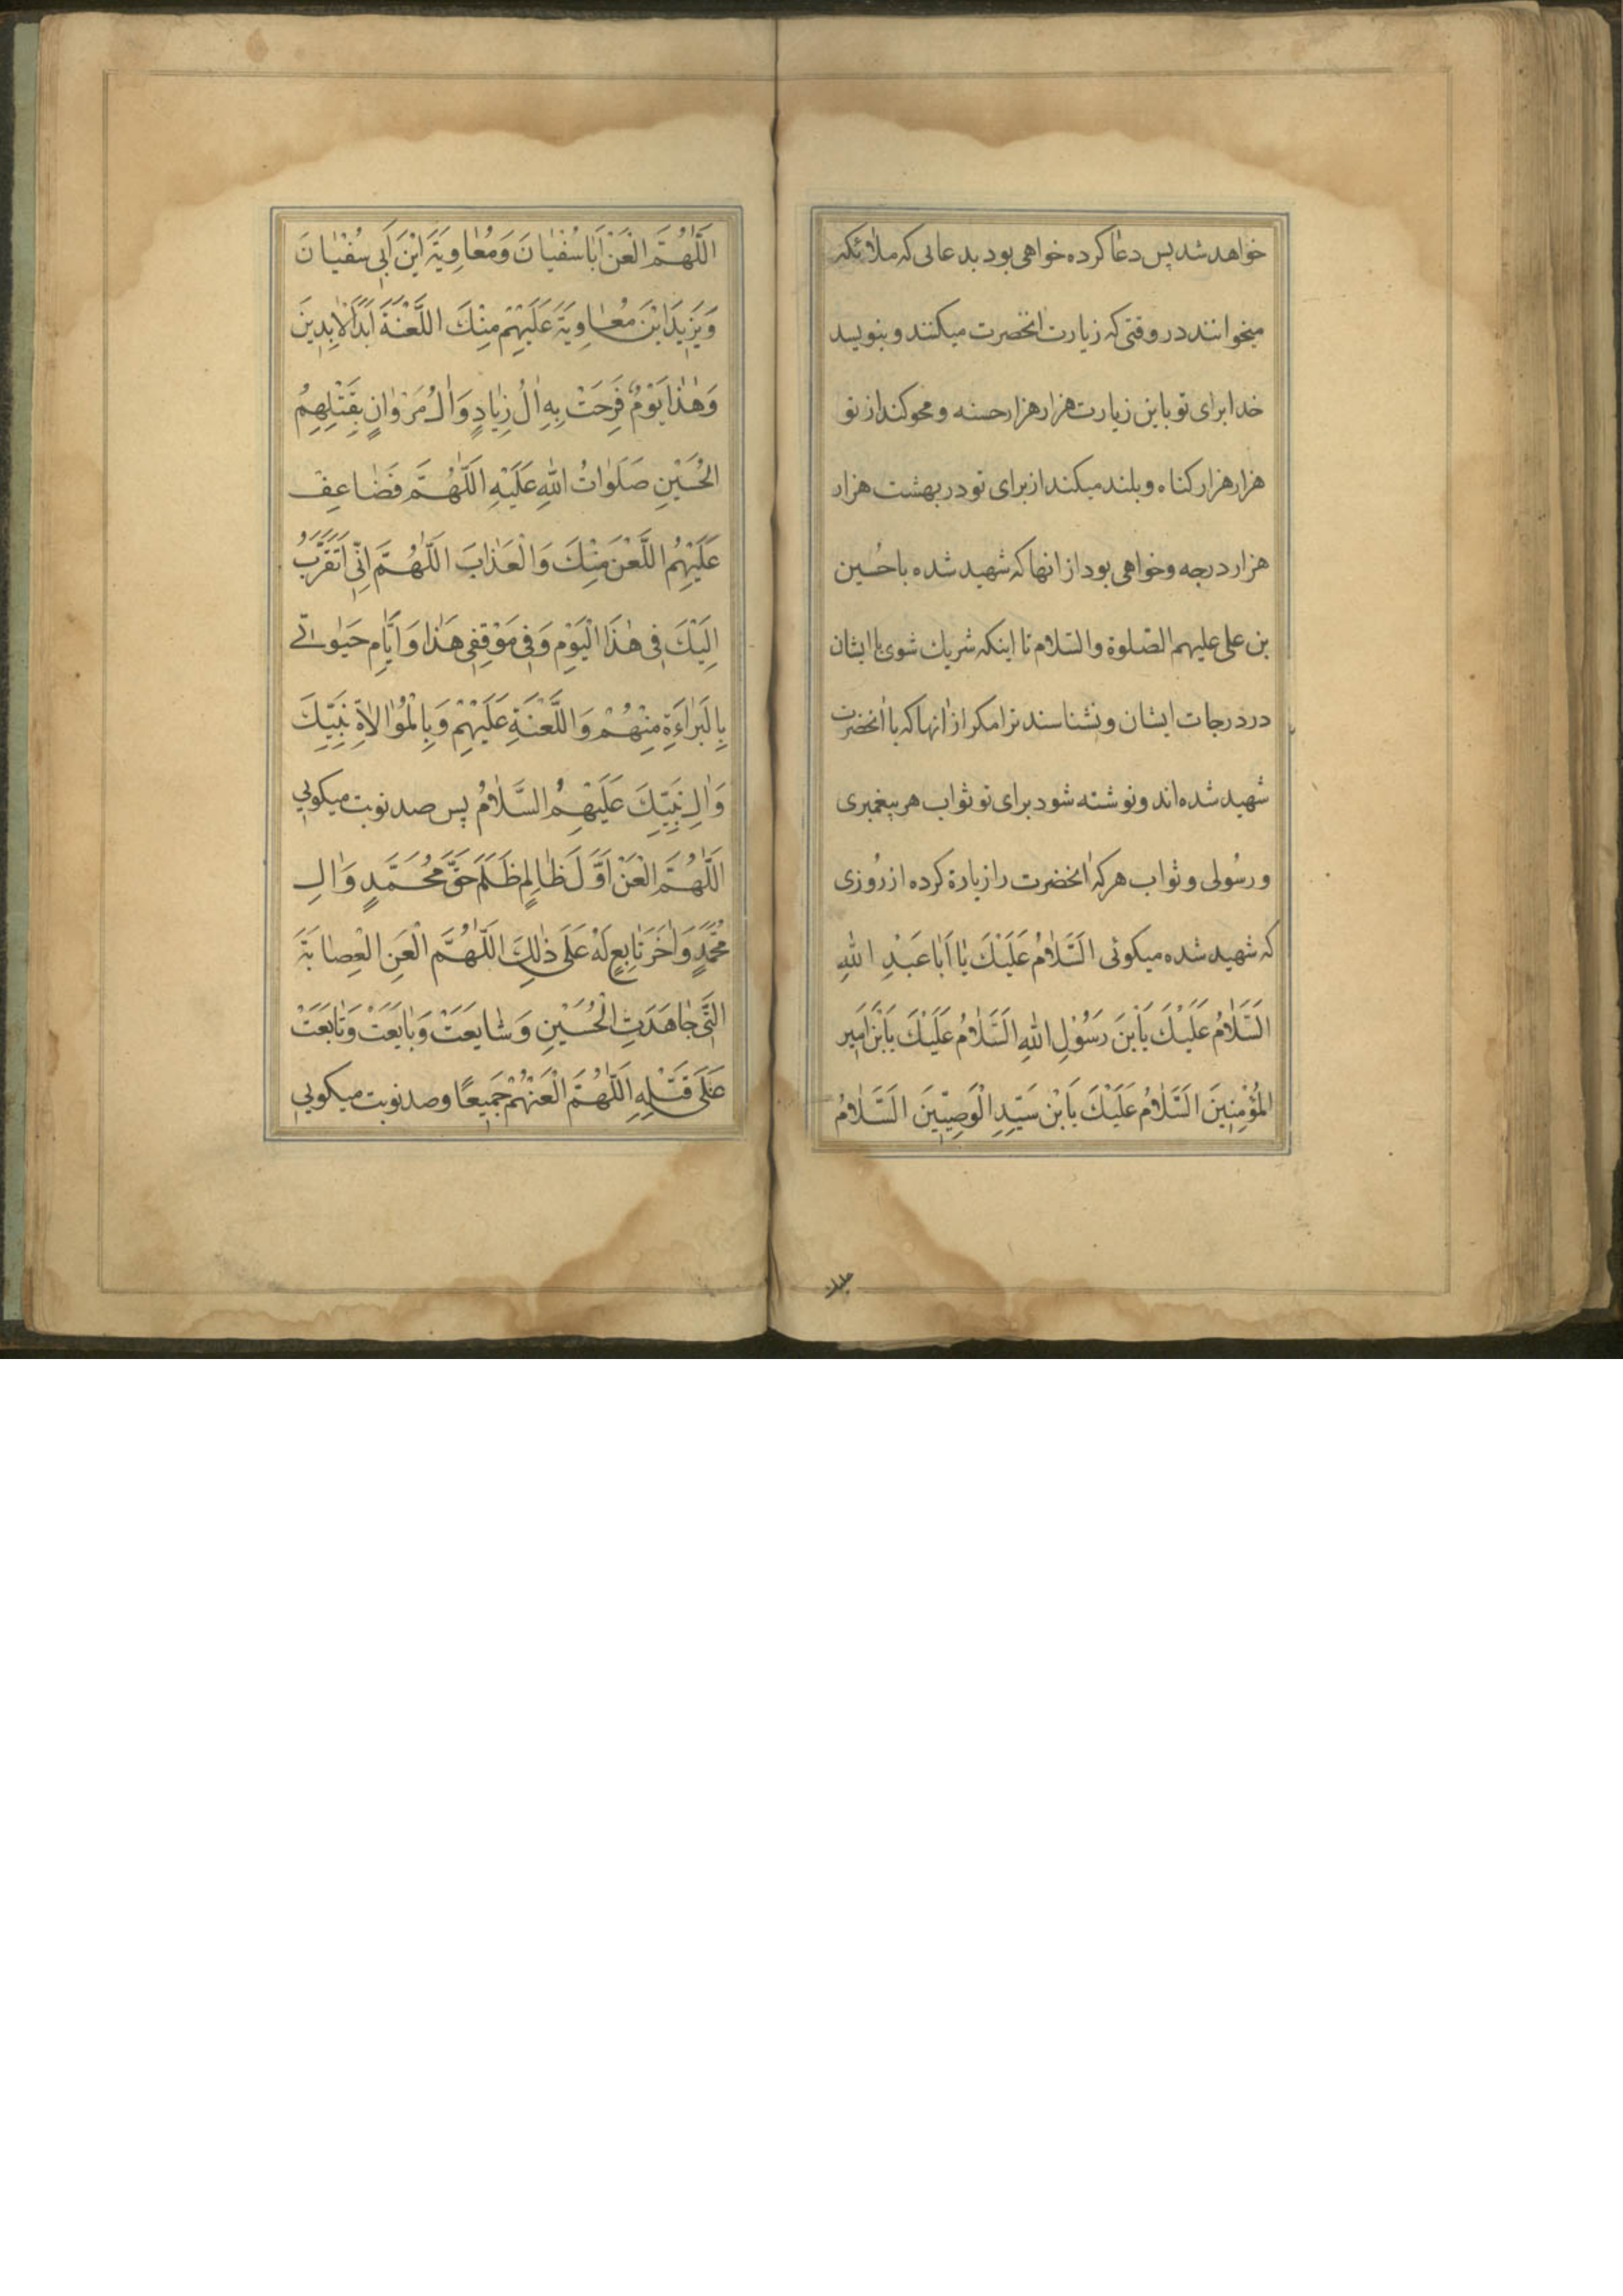 خواهد شد پس دعا کرده خواهی بود بدعائی که ملائکه
میخوانند در وقتی که زیارت انحضرت میکنند و بنویسد
خدا برای تو باین زیارت هزار هزار حسنه و محو کند از تو
هزار هزار کناه و بلند میکند از برای تو در بهشت هزار
هزار درجه و خواهی بود از انها که شهید شده با حُسین
بن علی علیهم الصلوة والسّلام تا اینکه شریك شوی با ایشان
در درجات ایشان و نشناسند ترا مکر از انها که با انحضرت
شهید شده‌اند و نوشته شود برای تو ثواب هر پیغمبری
و رسُولی و ثواب هر که انحضرت را زیارة کرده از رُوزی
که شهید شده میکوئی اَلسَّلامُ عَلَیْكَ یٰا اَبٰا عَبْدِ اللهِ
السَّلٰامُ عَلَیْكَ یَابْنَ رَسُوْلِ اللهِ اَلسَّلٰامُ عَلَیْكَ یَابْنَ اَمیرِ
المُؤْمِنینَ اَلسَّلٰامُ عَلَیْكَ یَابْنَ سَیِّدِ الْوَصِیّینَ اَلسَّلٰامُ
علیك
اَللّٰهُمَّ الْعَنْ اَبٰا سُفْیٰانَ وَ مُعٰاوِیَةَ ابْنَ اَبی سُفْیٰانَ
وَ یَزیدَ ابْنَ مُعٰاوِیَةَ عَلَیْهِمْ مِنْكَ اللَّعْنَةُ اَبَدَ الْاٰبِدینَ
وَ هٰذٰا یَوْمٌ فَرِحَتْ بِهِ اٰلُ زِیٰادٍ وَ اٰلُ مَرْوٰانٍ بِقَتْلِهِمُ
الْحُسَیْنِ صَلَوٰاتُ اللهِ عَلَیْهِ اَللّٰهُمَّ فَضٰاعِفْ
عَلَیْهِمُ اللَّعْنَ مِنْكَ وَ الْعَذٰابَ اَللّٰهُمَّ اِنّی اَتَقَرَّبُ
اِلَیْكَ فی هٰذَا الْیَوْمِ وَ فی مَوْقِفی هٰذٰا وَ اَیّٰامِ حَیٰوتی
بِالْبَرٰاءَةِ مِنْهُمْ وَ اللَّعْنَةِ عَلَیْهِمْ وَ بِالْمُوٰالاٰةِ نَبِیِّكَ
وَ اٰلِ نَبِیِّكَ عَلَیْهِمُ السَّلٰامُ پس صد نوبت میکویی
اَللّٰهُمَّ الْعَنْ اَوَّلَ ظٰالِمٍ ظَلَمَ حَقَّ مُحَمَّدٍ وَ اٰلِ
مُحَمَّدٍ وَ اٰخَرَ تٰابِعٍ لَهُ عَلٰی ذٰلِكَ اَللّٰهُمَّ الْعَنِ الْعِصٰابَةَ
الَّتی جٰاهَدَتِ الْحُسَیْنِ وَ شٰایَعَتْ وَ بٰایَعَتْ وَ تٰابَعَتْ
عَلٰی قَتْلِهِ اَللّٰهُمَّ الْعَنْهُمْ جَمیعًا و صد نوبت میکویی